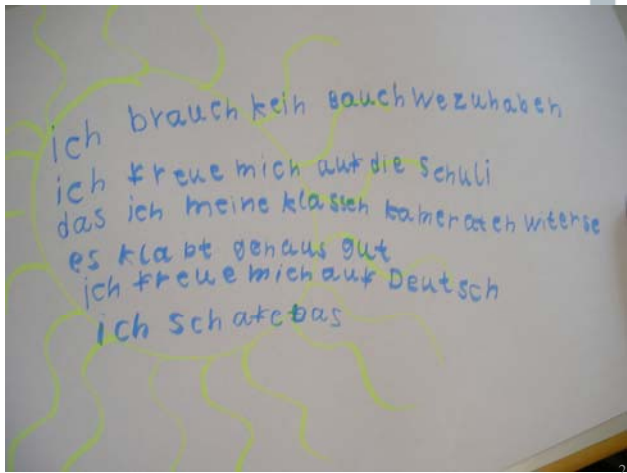 ich brauch kein bauchwezuhaben
ich freue mich auf die schuli
das ich meine klassen kameraten witerse
es klabt genaus gut
ich freue mich auf Deutsch
ich schafe das
2